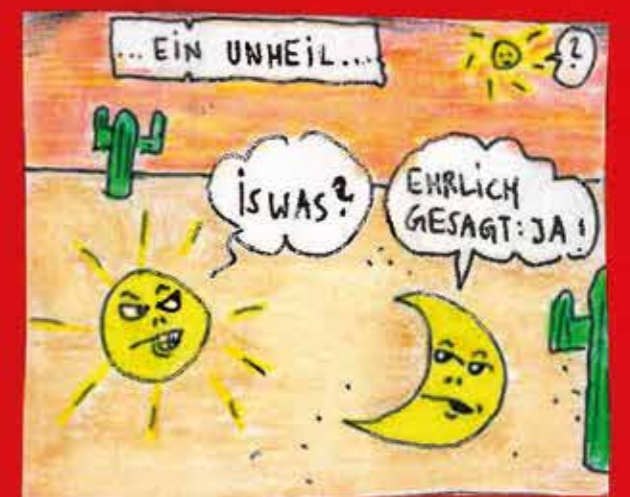 ... EIN UNHEIL...
?
ISWAS?
EHRLICH
GESAGT: JA!